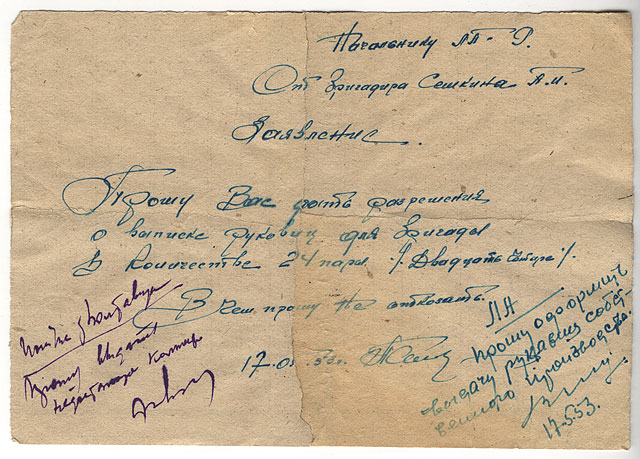 Начальнику ЛП-Р.
От Бригадира Сешкина А.И.
Заявление.
Прошу Вас дать разрешения
о выписке рукавиц для бригады
в количестве 24 пары /Двадцать четыре/.
В чем прошу не отказать.
17-05-53г.
Прошу выдать
ЛП
прошу одобрить
выдачу рукавиц собст-
венного производства.
17.5.53.